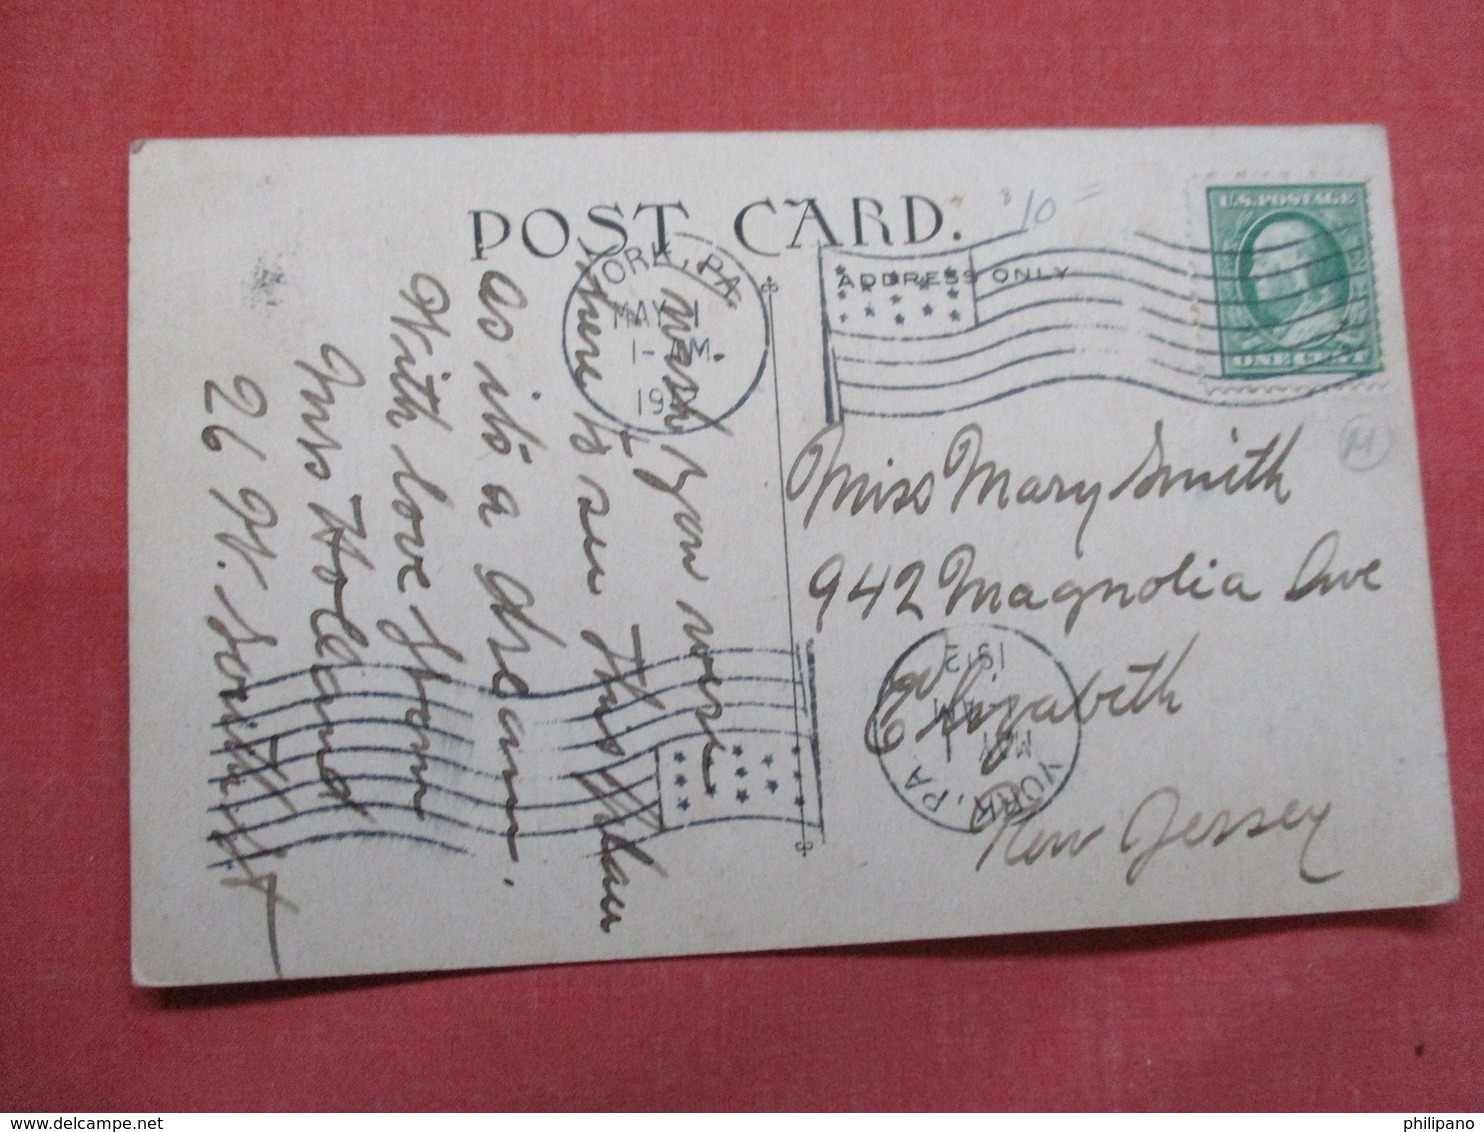 POST CARD.
$10=
ADDRESS ONLY
U.S. POSTAGE
ONE CENT
YORK, PA.
MAY 1
1-AM
191
M
Miss Mary Smith
942 Magnolia Ave
Elizabeth
New Jersey
YORK, PA
MAY 1
AM
1912
I wish you were
here to see this place
as its a dream.
With love from
Mrs Holland
26 W. South St
philipano